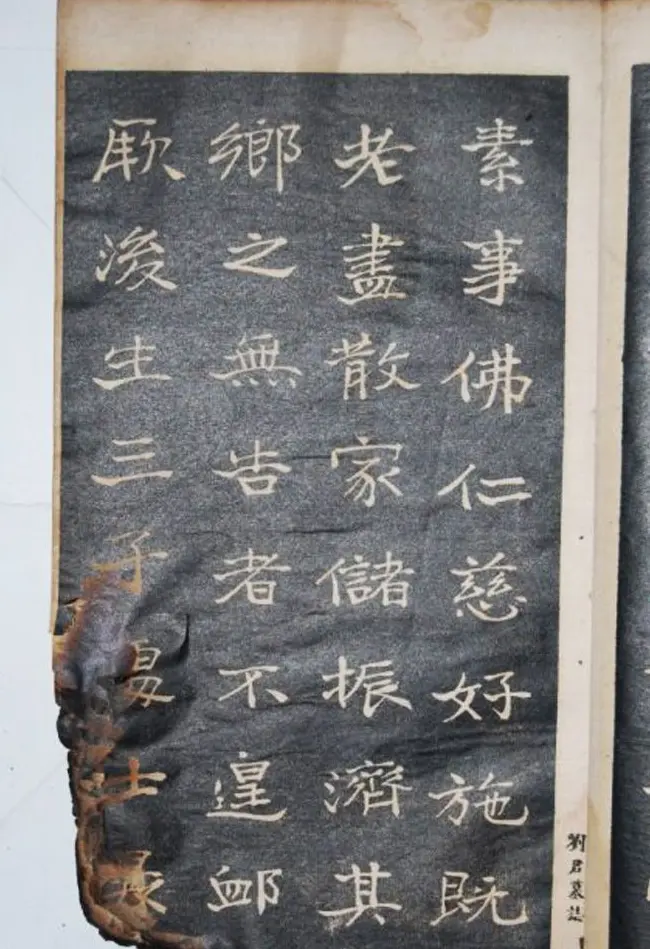 素事佛仁慈好施既
老盡散家儲振濟其
鄉之無告者不遑卹
厥後生三子夏士
劉君墓誌